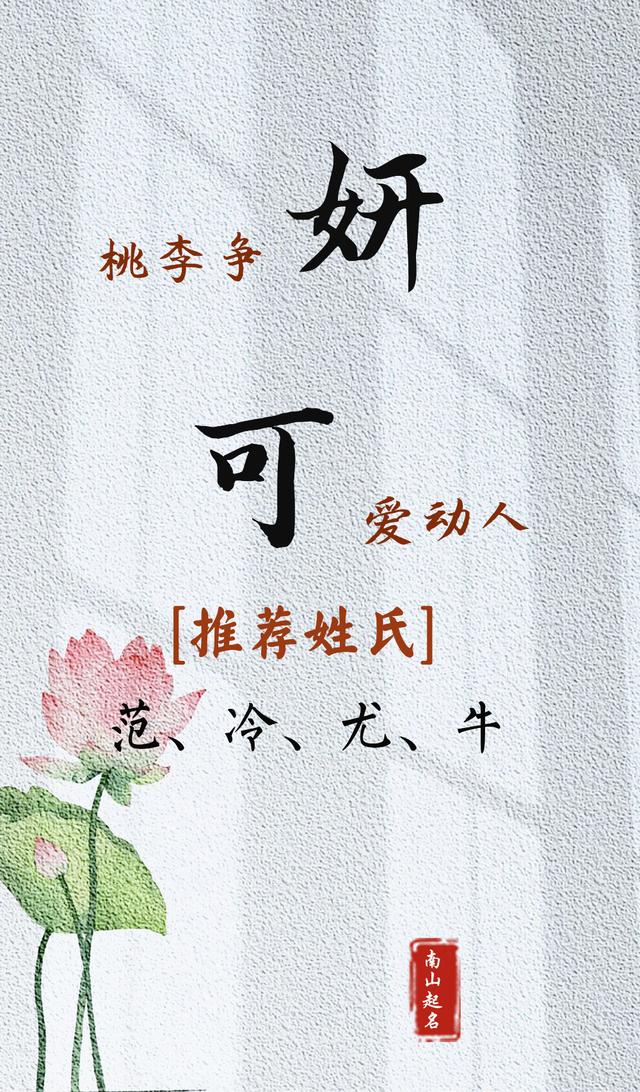 桃李争妍
可爱动人
[推荐姓氏]
范、冷、尤、牛
南山起名